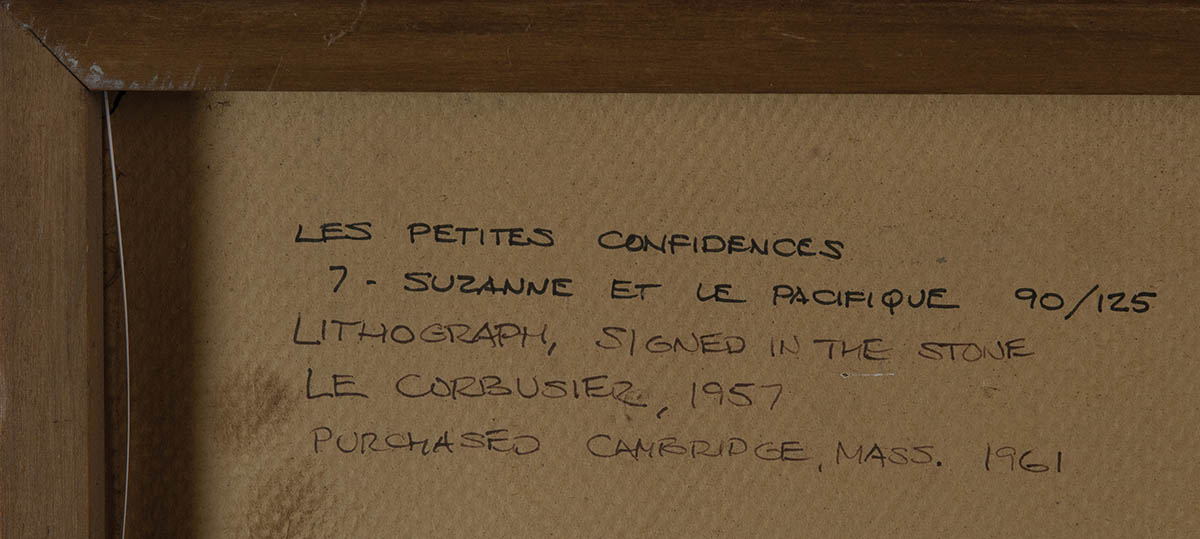 LES PETITES CONFIDENCES
7 - SUZANNE ET LE PACIFIQUE 90/125
LITHOGRAPH, SIGNED IN THE STONE
LE CORBUSIER, 1957
PURCHASED CAMBRIDGE, MASS. 1961